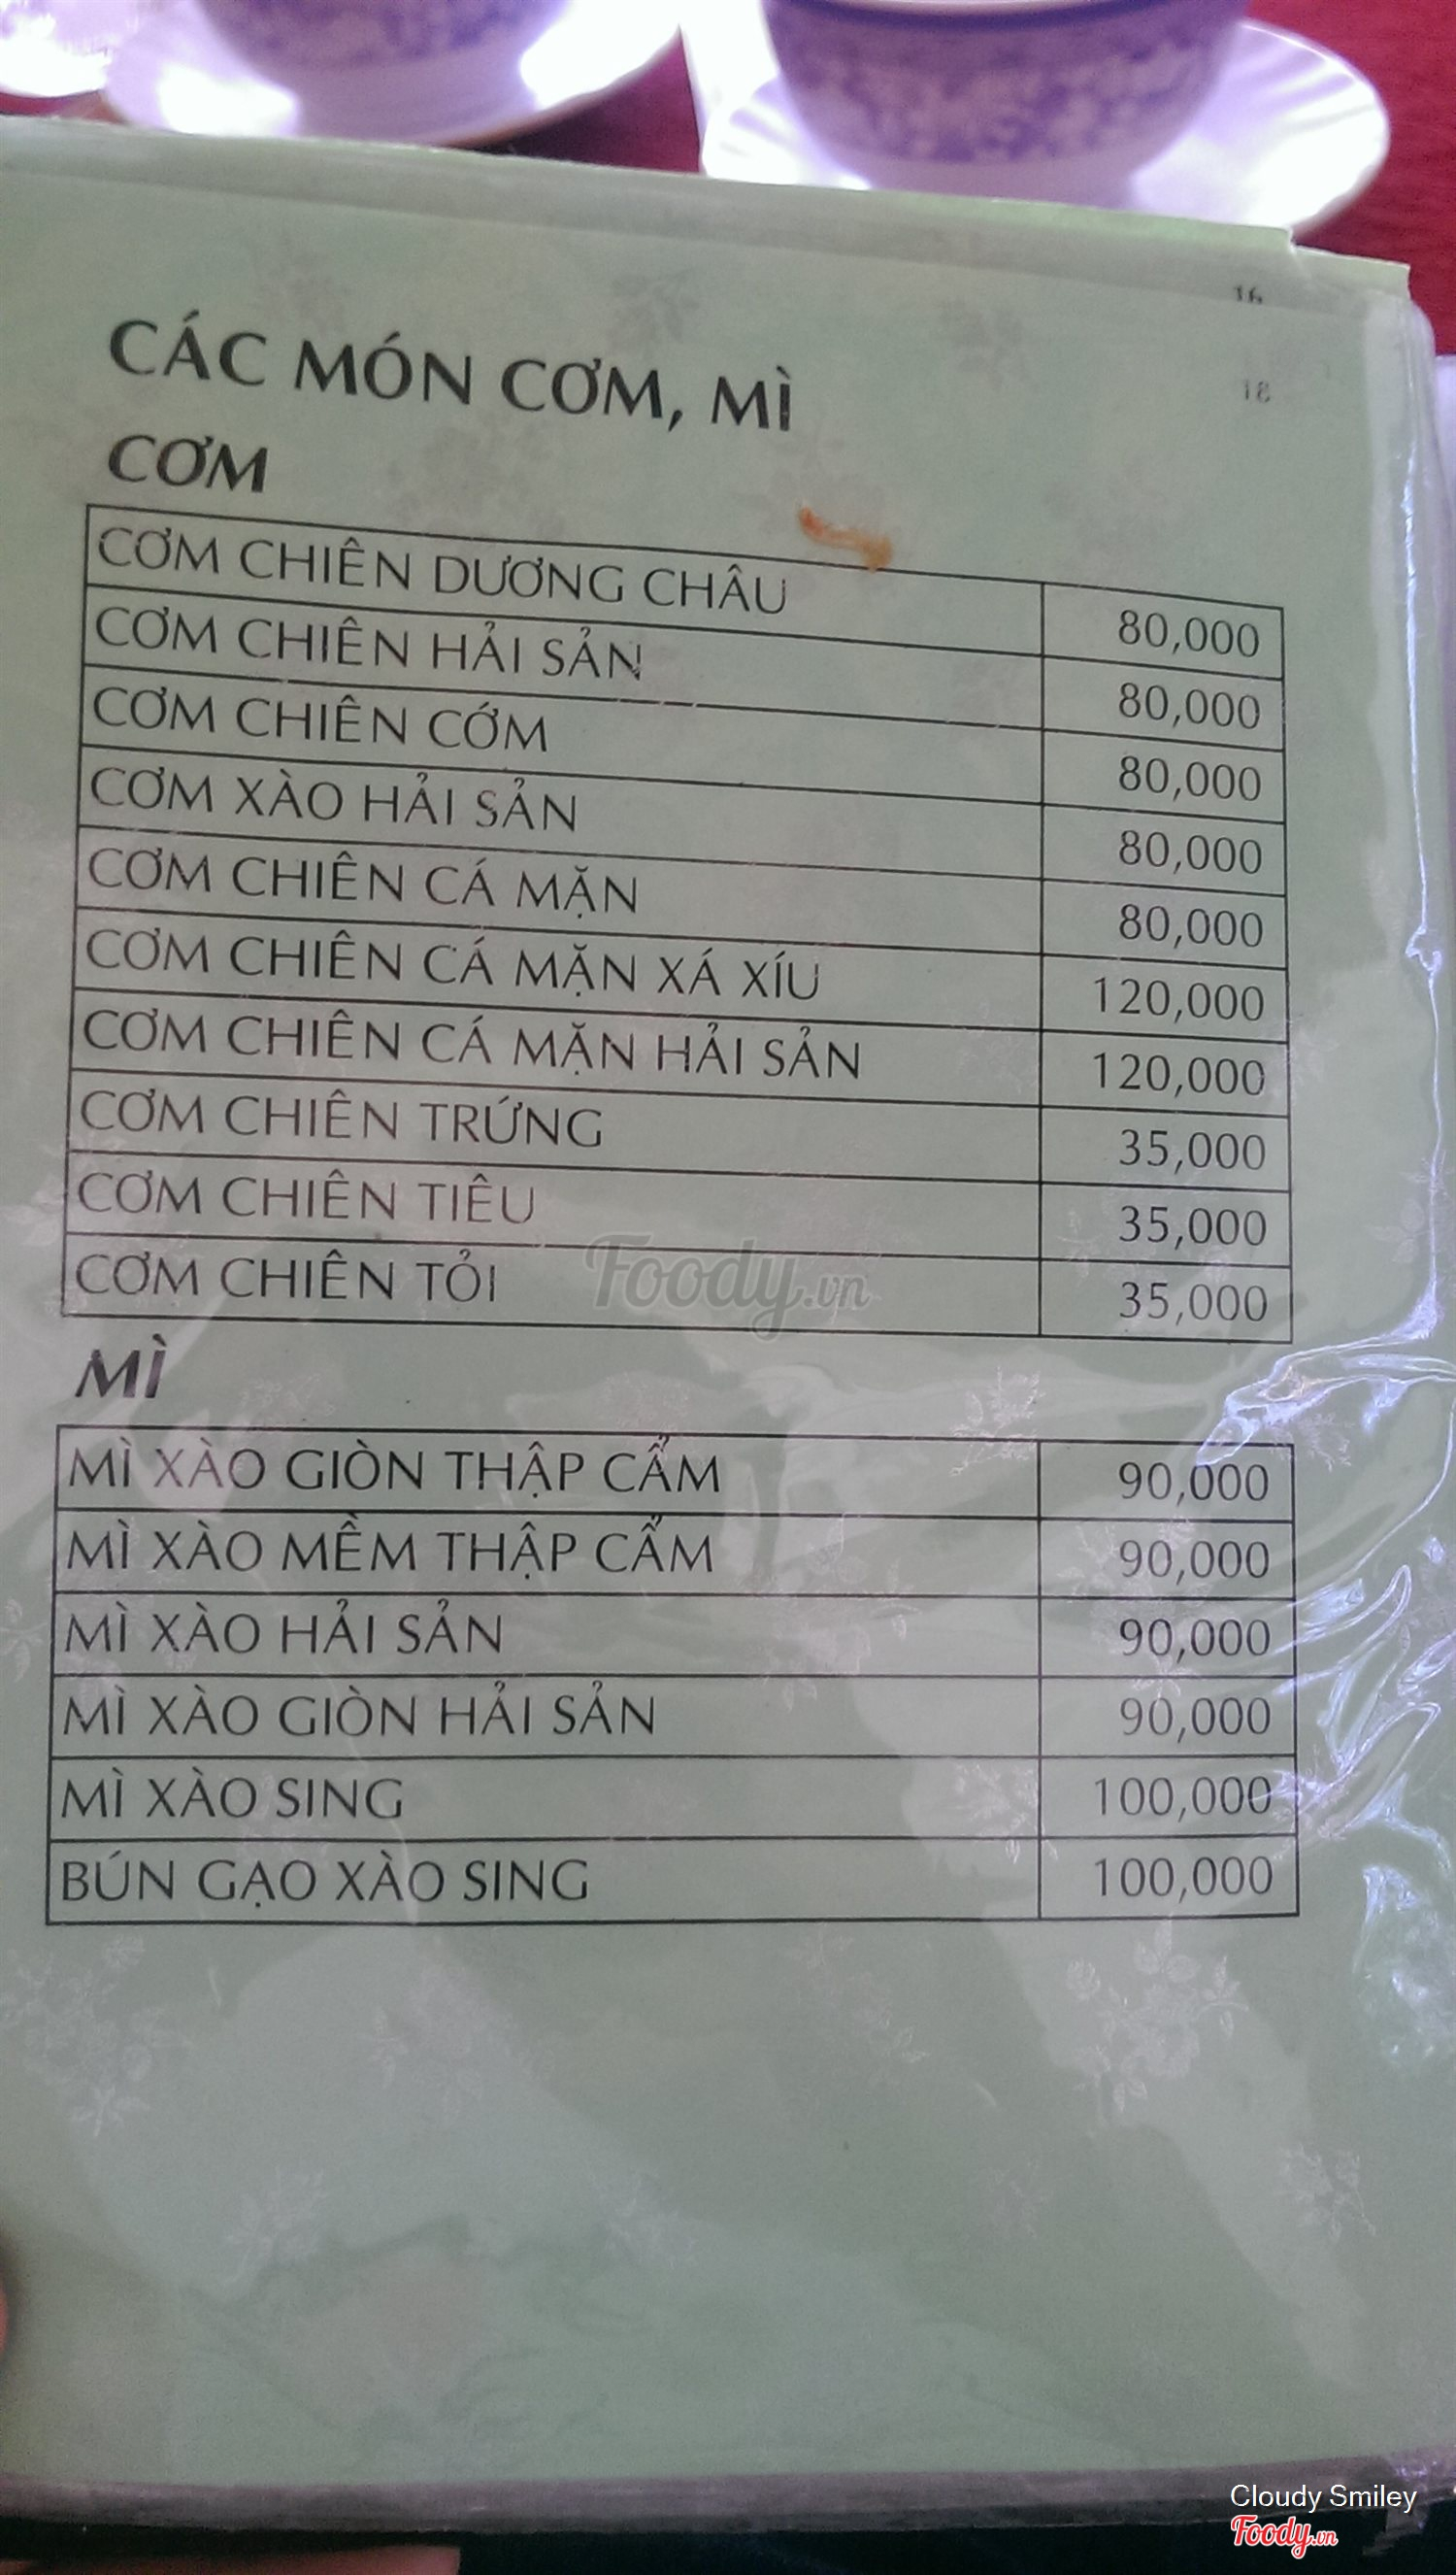 16
18
CÁC MÓN CƠM, MÌ
CƠM
CƠM CHIÊN DƯƠNG CHÂU 80,000
CƠM CHIÊN HẢI SẢN 80,000
CƠM CHIÊN CỚM 80,000
CƠM XÀO HẢI SẢN 80,000
CƠM CHIÊN CÁ MẶN 80,000
CƠM CHIÊN CÁ MẶN XÁ XÍU 120,000
CƠM CHIÊN CÁ MẶN HẢI SẢN 120,000
CƠM CHIÊN TRỨNG 35,000
CƠM CHIÊN TIÊU 35,000
CƠM CHIÊN TỎI 35,000
Foody.vn
MÌ
MÌ XÀO GIÒN THẬP CẨM 90,000
MÌ XÀO MỀM THẬP CẨM 90,000
MÌ XÀO HẢI SẢN 90,000
MÌ XÀO GIÒN HẢI SẢN 90,000
MÌ XÀO SING 100,000
BÚN GẠO XÀO SING 100,000
Cloudy Smiley
Foody.vn